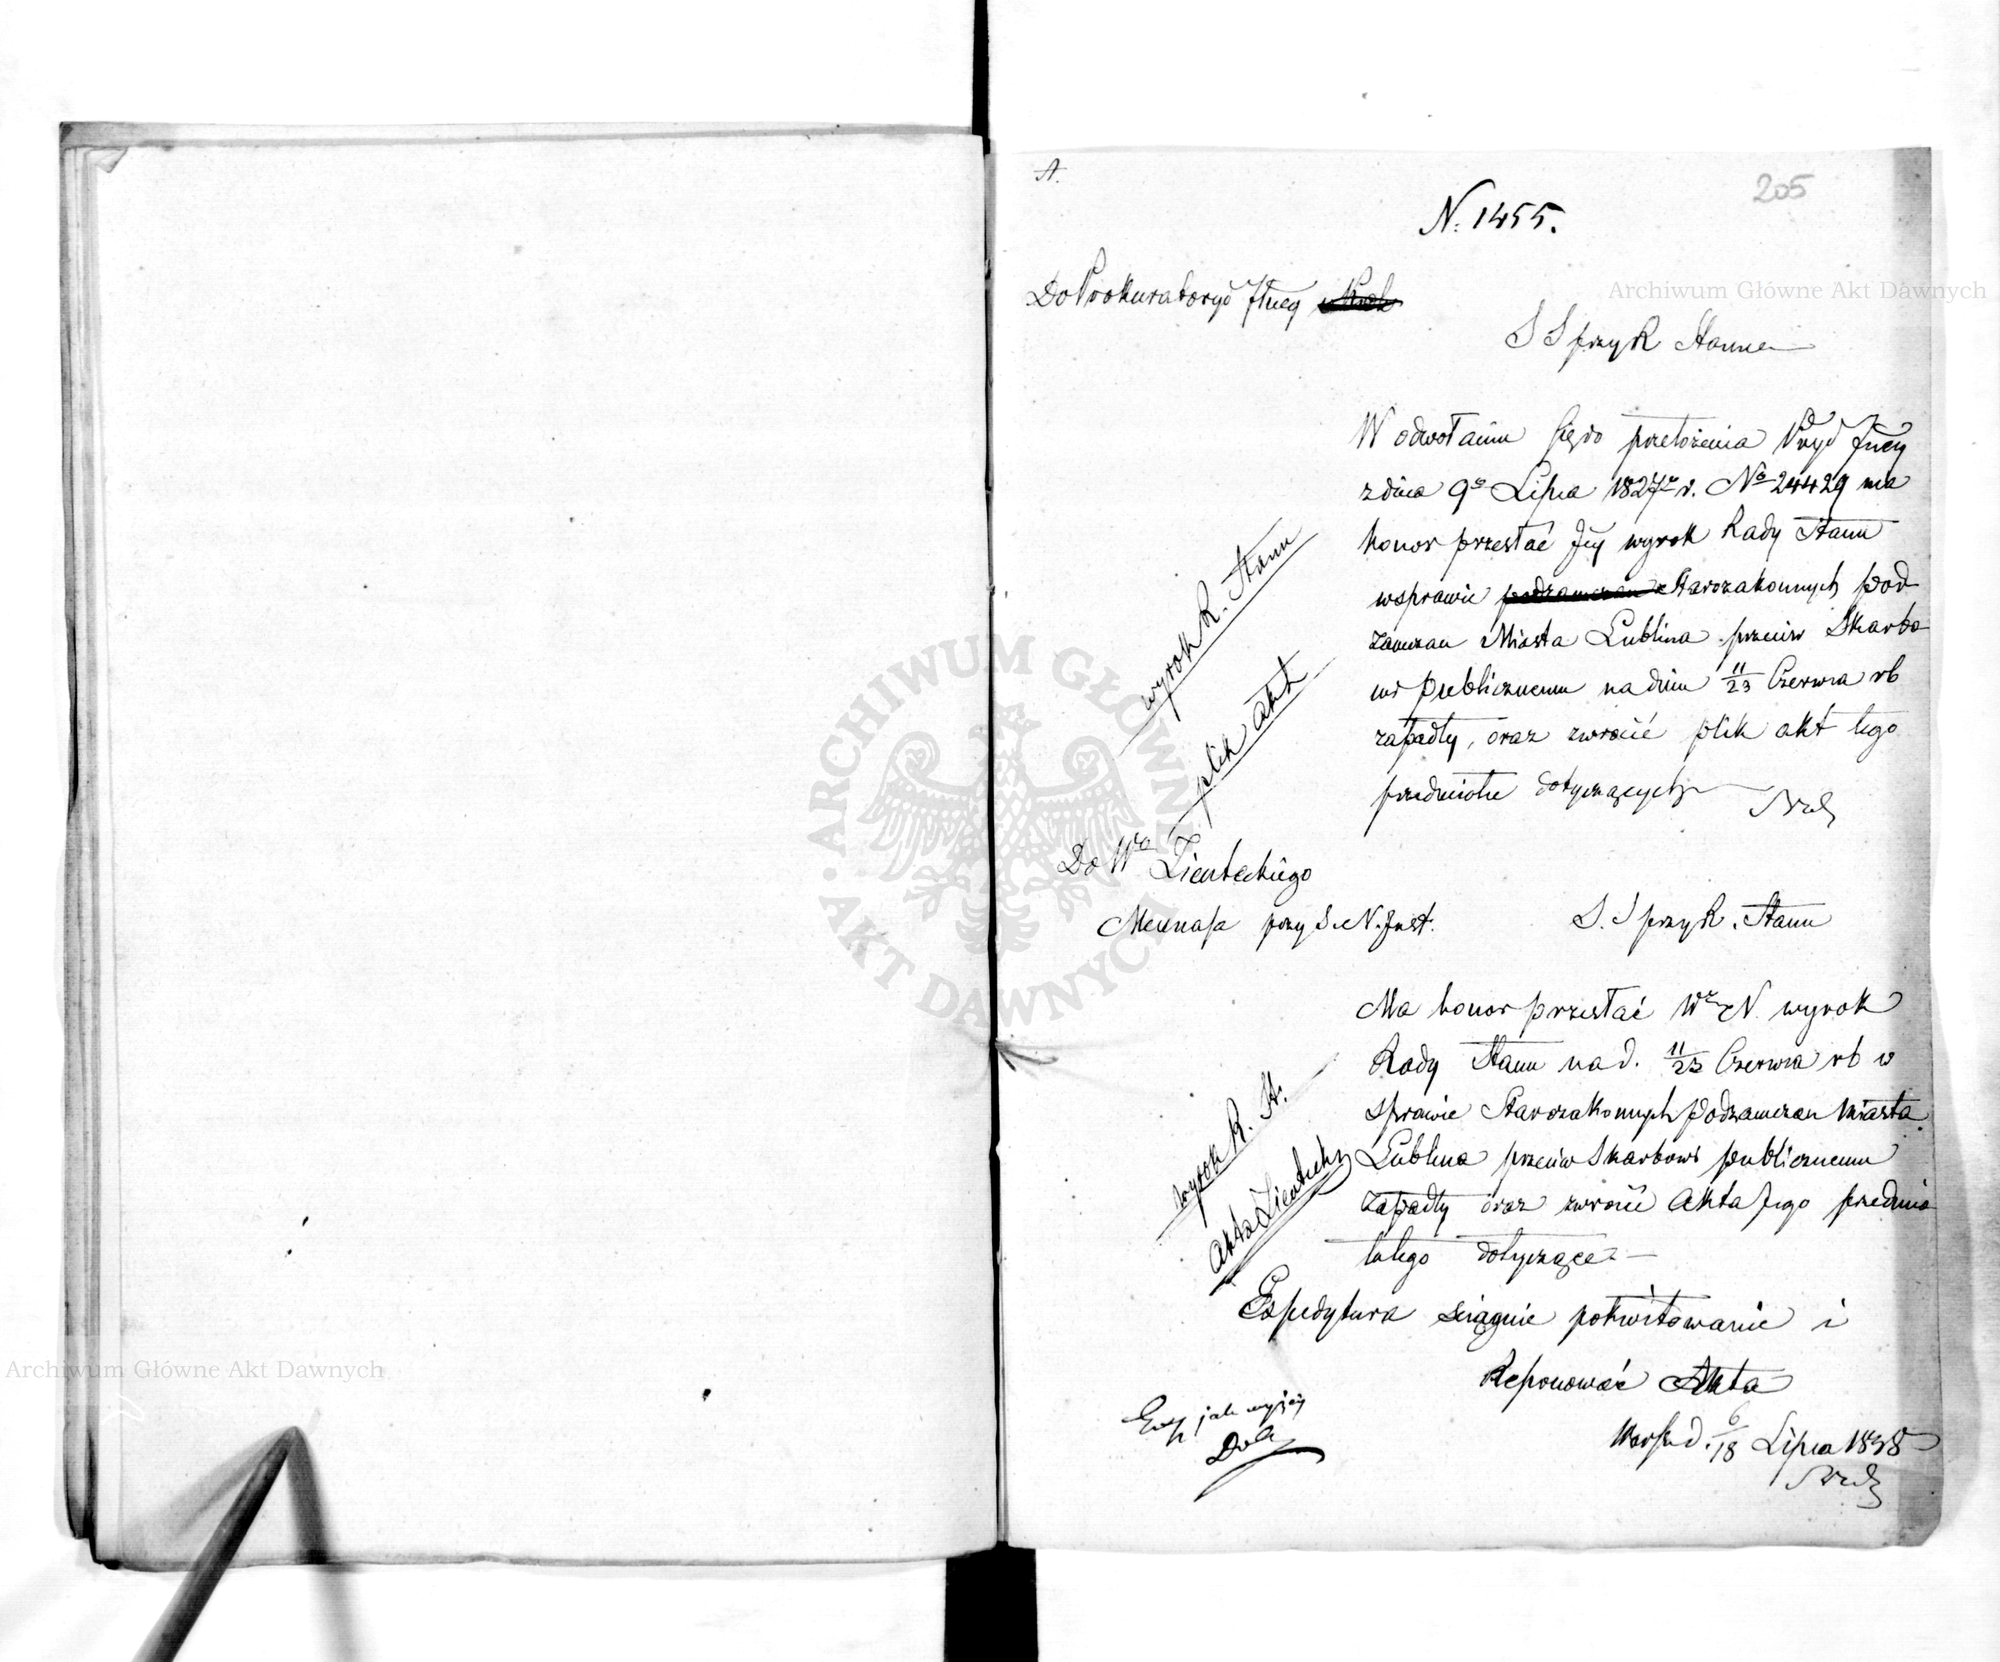 A.
205
N. 1455.
Do Prokuratoryi Jlney
S S przy R Stanu
W odwołaniu się do przełożenia Pryi Jlney
z dnia 9o Lipca 1827 r. No 24429 ma
honor przesłać Jey wyrok Rady Stanu
w sprawie Starozakonnych Pod-
zamczan Miasta Lublina przeciw Skarbo-
wi publicznemu na dniu 11/23 Czerwca rb
zapadły, oraz zwrócić plik akt tego
przedmiotu dotyczących
wyrok R. Stanu
plik akt
Do Wo
Mecenasa przy S. N. Inst.
S. S przy R. Stanu
Ma honor przesłać W N. wyrok
Rady Stanu na d. 11/23 Czerwca rb w
sprawie Starozakonnych Podzamczan Miasta
Lublina przeciw Skarbowi publicznemu
zapadły oraz zwrócić Akta Jego przedmio-
tu tego dotyczące
wyrok R. St.
Akta
Expedytura ściągnie pokwitowanie i
Reponować Akta
Warsz d. 6/18 Lipca 1838
Exp jak wyżej
Archiwum Główne Akt Dawnych
Archiwum Główne Akt Dawnych
ARCHIWUM GŁÓWNE AKT DAWNYCH